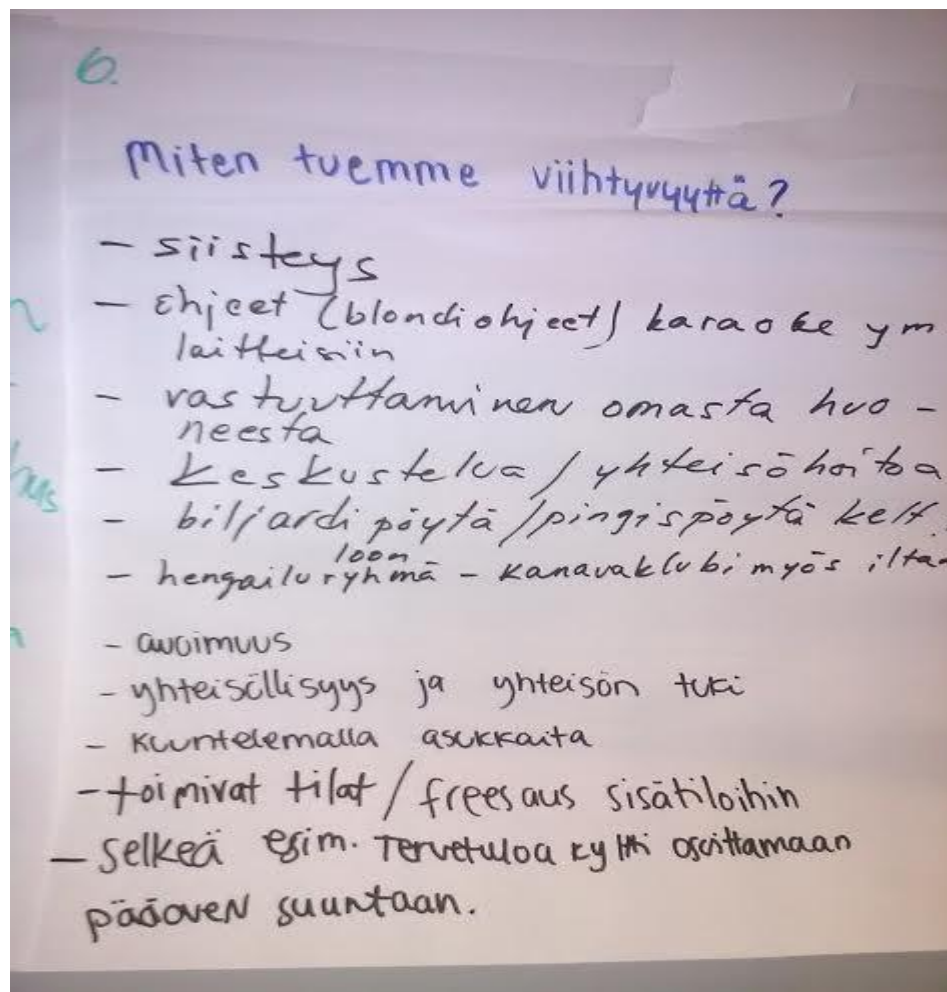 6.
Miten tuemme viihtyvyyttä?
- siisteys
- Ohjeet (blondiohjeet) karaoke ym
laitteisiin
- vastuuttaminen omasta huo -
neesta
- Keskustelua / yhteisöhoitoa
- biljardipöytä / pingispöytä
- hengailuryhmä - Kanavaklubi myös
- avoimuus
- yhteisöllisyys ja yhteisön tuki
- kuuntelemalla asukkaita
- toimivat tilat / freesaus sisätiloihin
- selkeä esim. Tervetuloa kyltti osoittamaan
pääoven suuntaan.